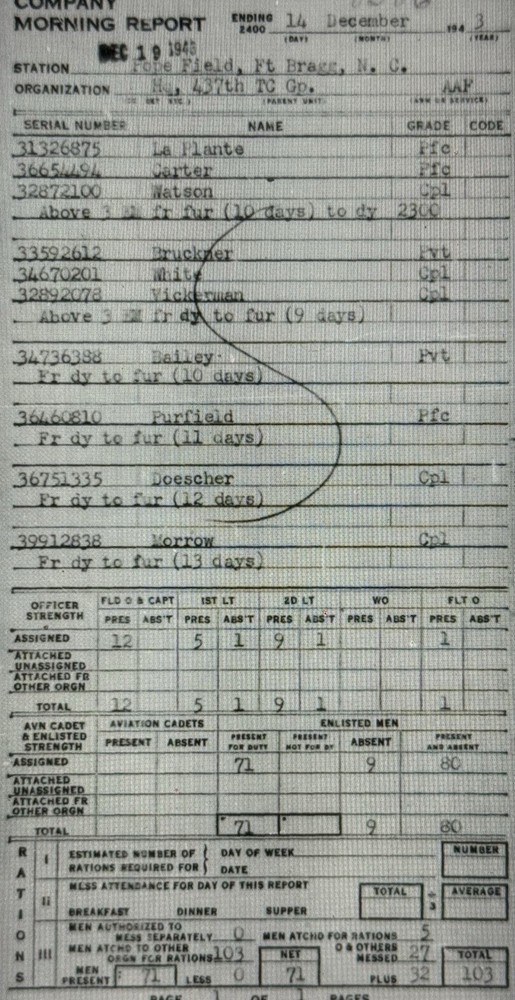 COMPANY
MORNING REPORT ENDING 2400 14 December 194 3
(DAY) (MONTH) (YEAR)
DEC 19 1943
STATION Pope Field, Ft Bragg, N. C.
ORGANIZATION Hq, 437th TC Gp. AAF
(PARENT UNIT) (ARM OR SERVICE)
SERIAL NUMBER NAME GRADE CODE
31326875 La Plante Pfc
36654494 Carter Pfc
32872100 Watson Cpl
Above 3 EM fr fur (10 days) to dy 2300
33592612 Bruckner Pvt
34670201 White Cpl
32892078 Vickerman Cpl
Above 3 EM fr dy to fur (9 days)
34736388 Bailey Pvt
Fr dy to fur (10 days)
36460810 Purfield Pfc
Fr dy to fur (11 days)
36751335 Doescher Cpl
Fr dy to fur (12 days)
39912838 Morrow Cpl
Fr dy to fur (13 days)
OFFICER STRENGTH FLD O & CAPT 1ST LT 2D LT WO FLT O
PRES ABS'T PRES ABS'T PRES ABS'T PRES ABS'T PRES ABS'T
ASSIGNED 12 5 1 9 1 1
ATTACHED UNASSIGNED
ATTACHED FR OTHER ORGN
TOTAL 12 5 1 9 1 1
AVN CADET & ENLISTED STRENGTH AVIATION CADETS ENLISTED MEN
PRESENT ABSENT PRESENT FOR DUTY PRESENT NOT FOR DY ABSENT PRESENT AND ABSENT
ASSIGNED 71 9 80
ATTACHED UNASSIGNED
ATTACHED FR OTHER ORGN
TOTAL 71 9 80
RATIONS
I ESTIMATED NUMBER OF RATIONS REQUIRED FOR { DAY OF WEEK DATE NUMBER
II MESS ATTENDANCE FOR DAY OF THIS REPORT TOTAL ÷ 3 AVERAGE
BREAKFAST DINNER SUPPER
III MEN AUTHORIZED TO MESS SEPARATELY 0 MEN ATCHD FOR RATIONS 5
MEN ATCHD TO OTHER ORGN FOR RATIONS 103 NET O & OTHERS MESSED 27 TOTAL
MEN PRESENT 71 LESS 0 71 PLUS 32 103
PAGE 1 OF 1 PAGES